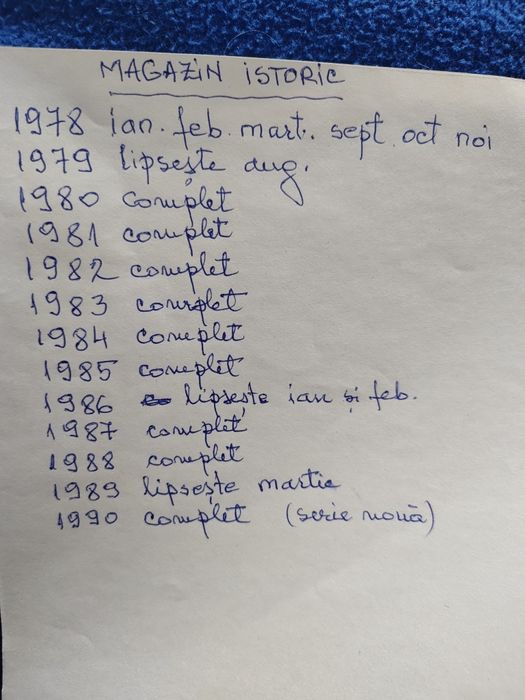 MAGAZIN ISTORIC
1978 ian. feb. mart. sept. oct noi
1979 lipsește aug.
1980 complet
1981 complet
1982 complet
1983 complet
1984 complet
1985 complet
1986 lipsește ian și feb.
1987 complet
1988 complet
1989 lipsește martie
1990 complet (serie nouă)